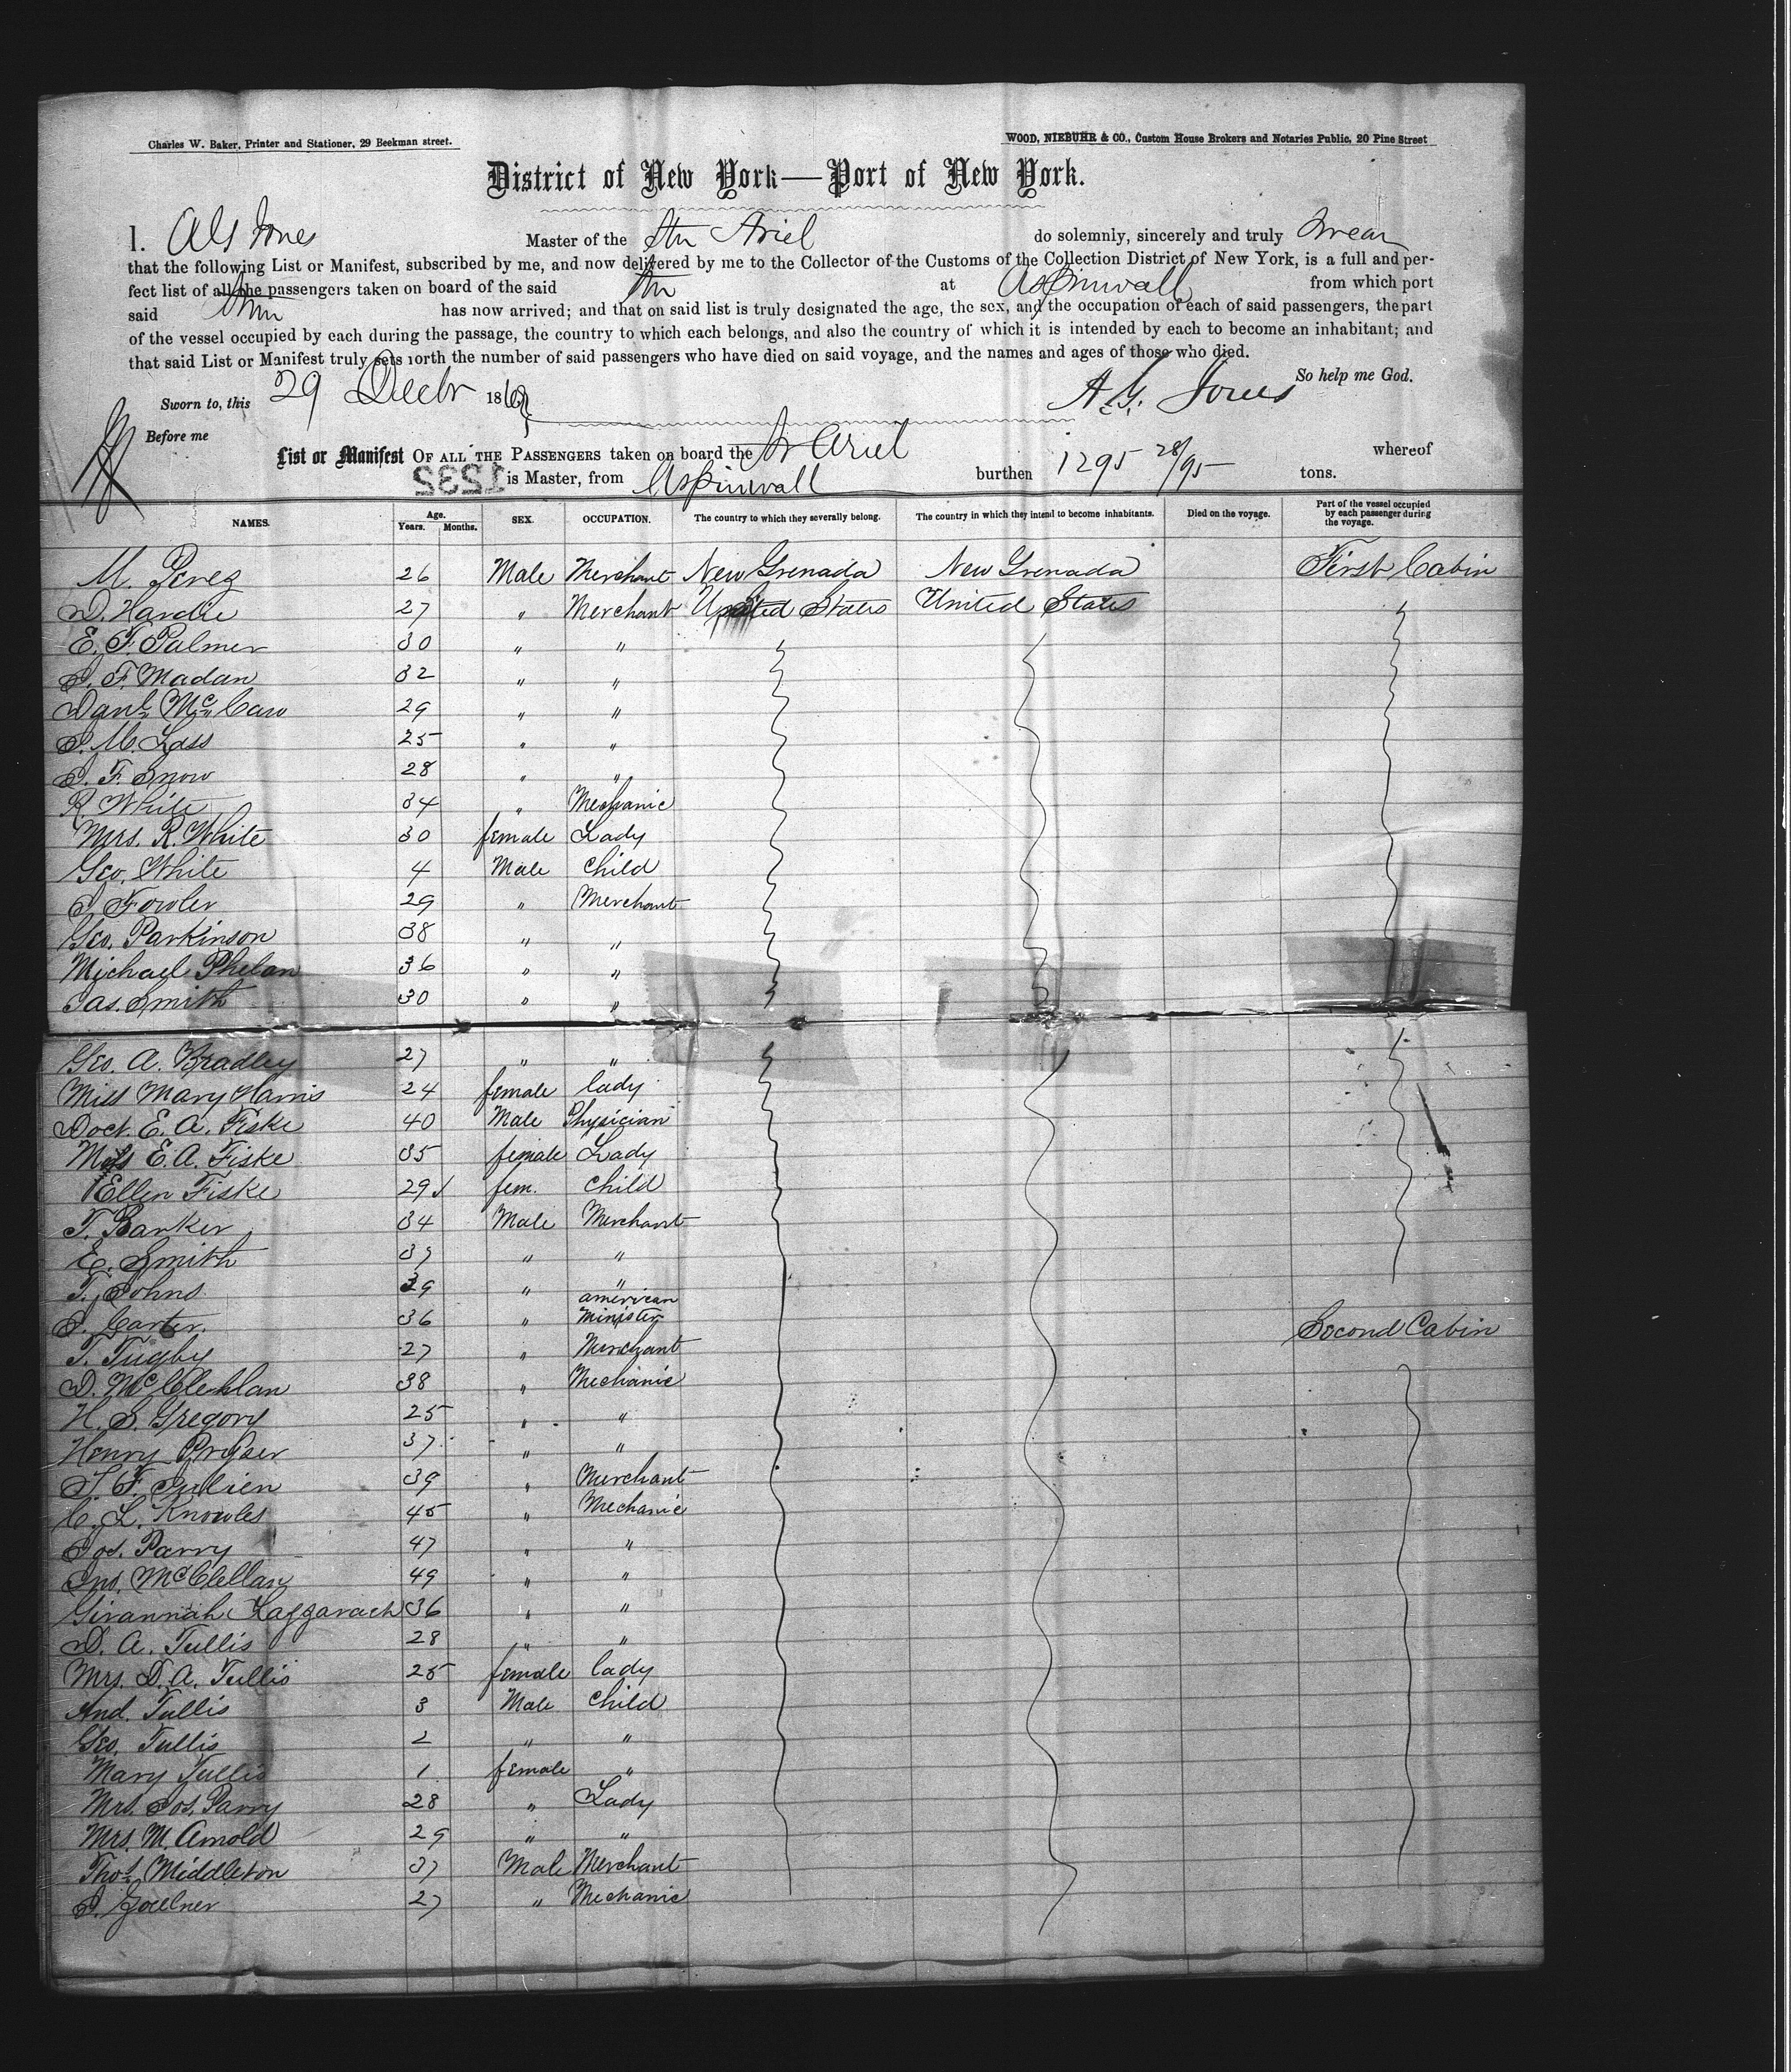 Charles W. Baker, Printer and Stationer, 29 Beekman street.
WOOD, NIEBUHR & CO., Custom House Brokers and Notaries Public, 20 Pine Street
District of New York—Port of New York.
I. A G Jones Master of the Str Ariel do solemnly, sincerely and truly Swear
that the following List or Manifest, subscribed by me, and now delivered by me to the Collector of the Customs of the Collection District of New York, is a full and per-
fect list of all the passengers taken on board of the said Str at Aspinwall from which port
said Str has now arrived; and that on said list is truly designated the age, the sex, and the occupation of each of said passengers, the part
of the vessel occupied by each during the passage, the country to which each belongs, and also the country of which it is intended by each to become an inhabitant; and
that said List or Manifest truly sets forth the number of said passengers who have died on said voyage, and the names and ages of those who died.
So help me God.
Sworn to, this 29 Decbr 186
A. G. Jones
Before me
List or Manifest OF ALL THE PASSENGERS taken on board the Str Ariel whereof
1232 is Master, from Aspinwall burthen 1295 28/95 tons.
NAMES. Age. Years. Months. SEX. OCCUPATION. The country to which they severally belong. The country in which they intend to become inhabitants. Died on the voyage. Part of the vessel occupied by each passenger during the voyage.
M. Perez 26 Male Merchant New Grenada New Grenada First Cabin
D. Hardie 27 " Merchant United States United States
E. F. Palmer 30 " "
J. F. Madan 32 " "
Danl. McCaw 29 " "
J. M. Lass 25 " "
J. F. Snow 28 " "
R. White 34 " Mechanic
Mrs. R. White 30 female Lady
Geo. White 4 Male Child
J. Fowler 29 " Merchant
Geo. Parkinson 38 " "
Michael Phelan 36 " "
Jas. Smith 30 " "
Geo. A. Bradley 27 " "
Miss Mary Harris 24 female lady
Doct. E. A. Fiske 40 Male Physician
Mrs E. A. Fiske 35 female Lady
Ellen Fiske 29 fem. Child
T. Barker 34 Male Merchant
E. Smith 37 " "
T. Johns 39 " "
J. Carter. 36 " american Minister Second Cabin
T. Tugby 27 " Merchant
D. McClehlan 38 " Mechanic
H. S. Gregory 25 " "
Henry 37 " "
S. F. Julien 39 " Merchant
C. L. Knowles 45 " Mechanic
Jos. Parry 47 " "
Jno. McClellan 49 " "
Givannah Lazzarach 36 " "
D. A. Tullis 28 " "
Mrs. D. A. Tullis 25 female lady
And. Tullis 3 Male Child
Geo. Tullis 2 " "
Mary Tullis 1 female "
Mrs. Jos. Parry 28 " Lady
Mrs. M. Arnold 29 " "
Thos. Middleton 37 Male Merchant
J. Zoellner 27 " Mechanic